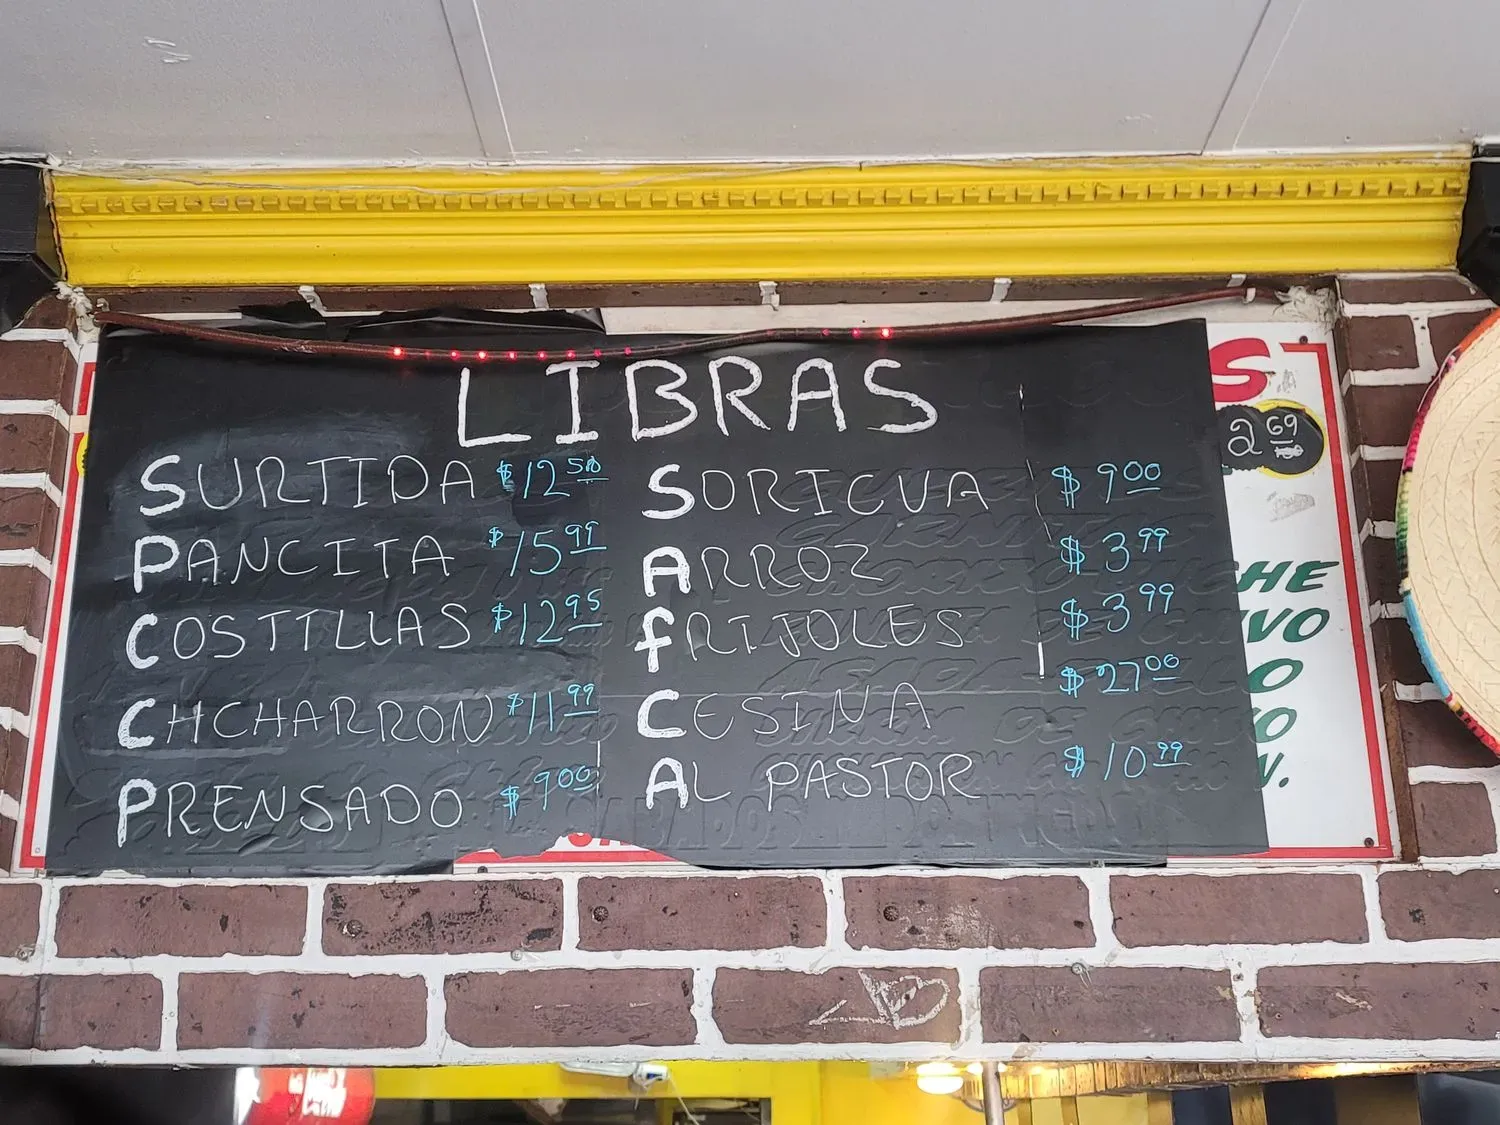 LIBRAS
SURTIDA $12.50
PANCITA $15.99
COSTILLAS $12.95
CHCHARRON $11.99
PRENSADO $9.00
SORICUA $9.00
ARROZ $3.99
FRIJOLES $3.99
CESINA $27.00
AL PASTOR $10.99
S
2.69
CHE
IVO
O
O
N.